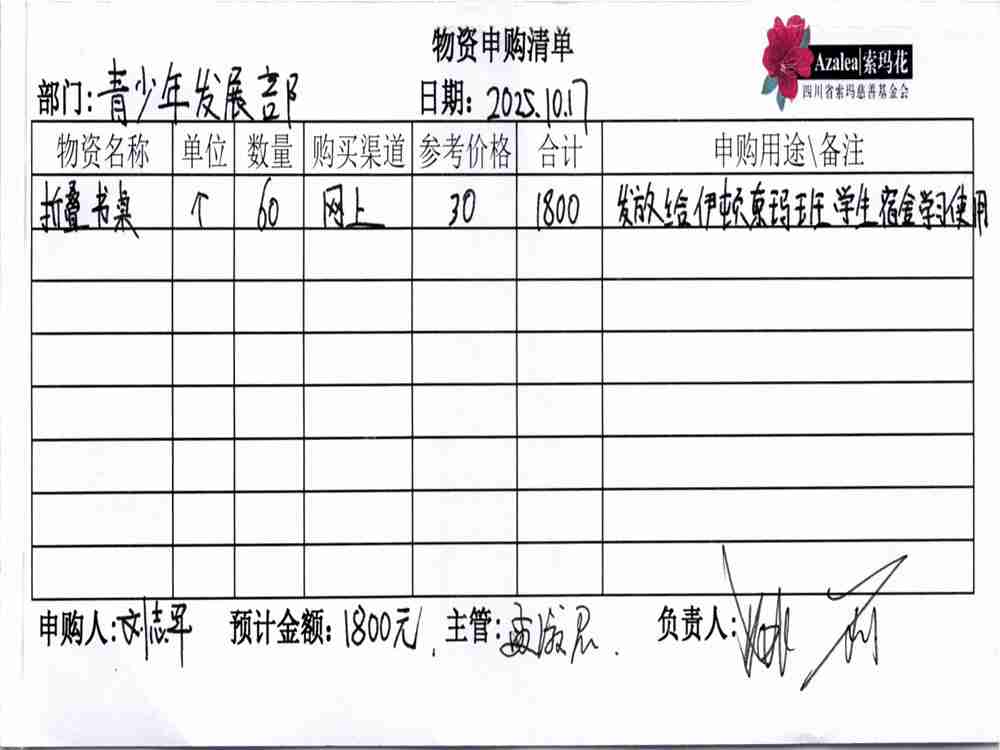 物资申购清单
Azalea|索玛花
四川省索玛慈善基金会
部门:青少年发展部 日期:2025.10.17
物资名称 单位 数量 购买渠道 参考价格 合计 申购用途\备注
折叠书桌 个 60 网上 30 1800 发放给伊顿索玛班学生宿舍学习使用
申购人:刘志军 预计金额:1800元. 主管: 负责人: